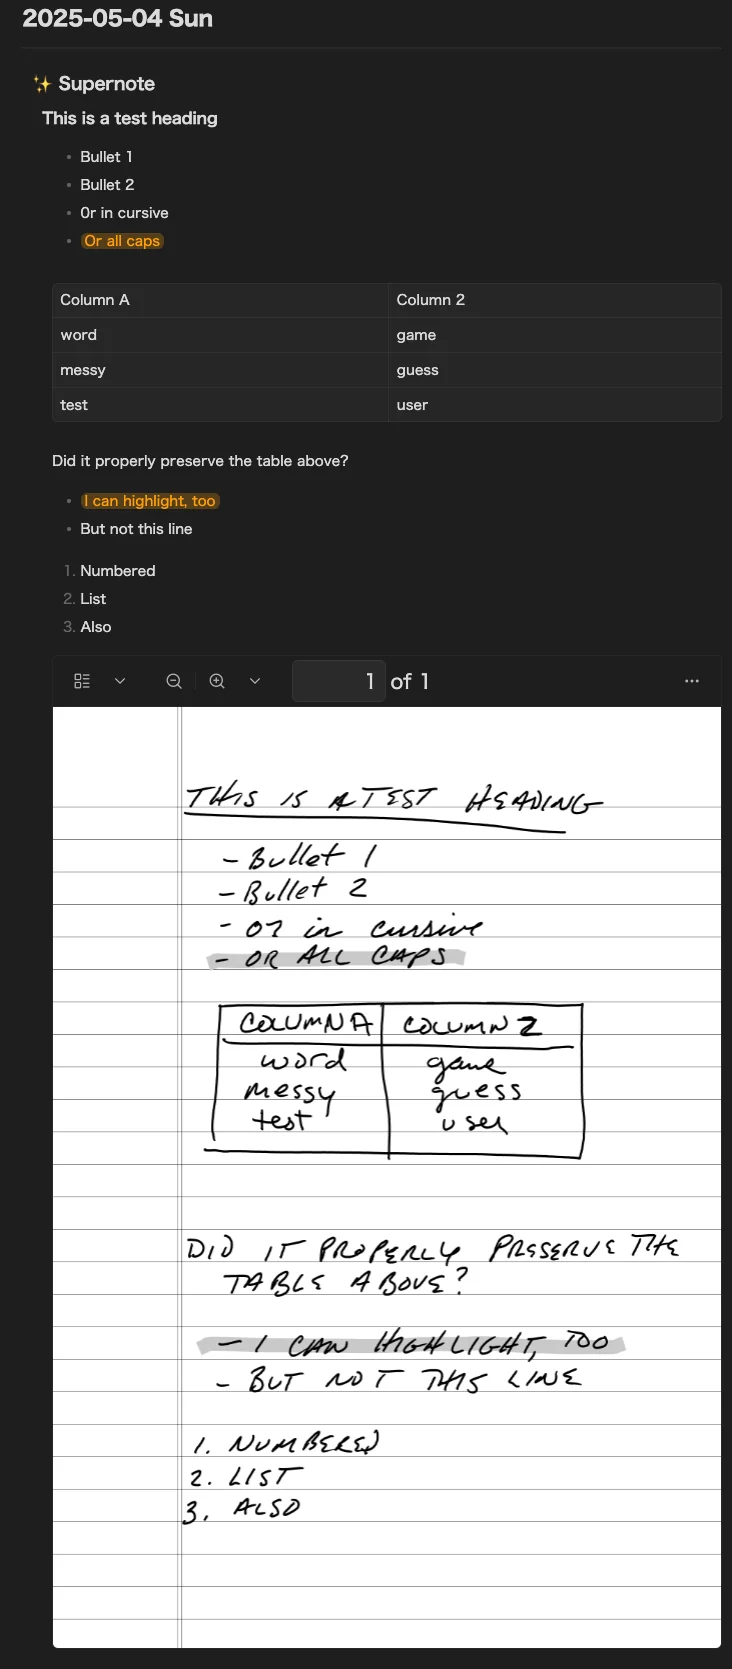 2025-05-04 Sun
✨ Supernote
This is a test heading
• Bullet 1
• Bullet 2
• 0r in cursive
• Or all caps
Column A Column 2
word game
messy guess
test user
Did it properly preserve the table above?
• I can highlight, too
• But not this line
1. Numbered
2. List
3. Also
1 of 1
THIS IS A TEST HEADING
- Bullet 1
- Bullet 2
- or in cursive
- OR ALL CAPS
COLUMN A COLUMN 2
word game
messy guess
test user
DID IT PROPERLY PRESERVE THE
TABLE ABOVE?
- I CAN HIGHLIGHT, TOO
- BUT NOT THIS LINE
1. NUMBERED
2. LIST
3. ALSO